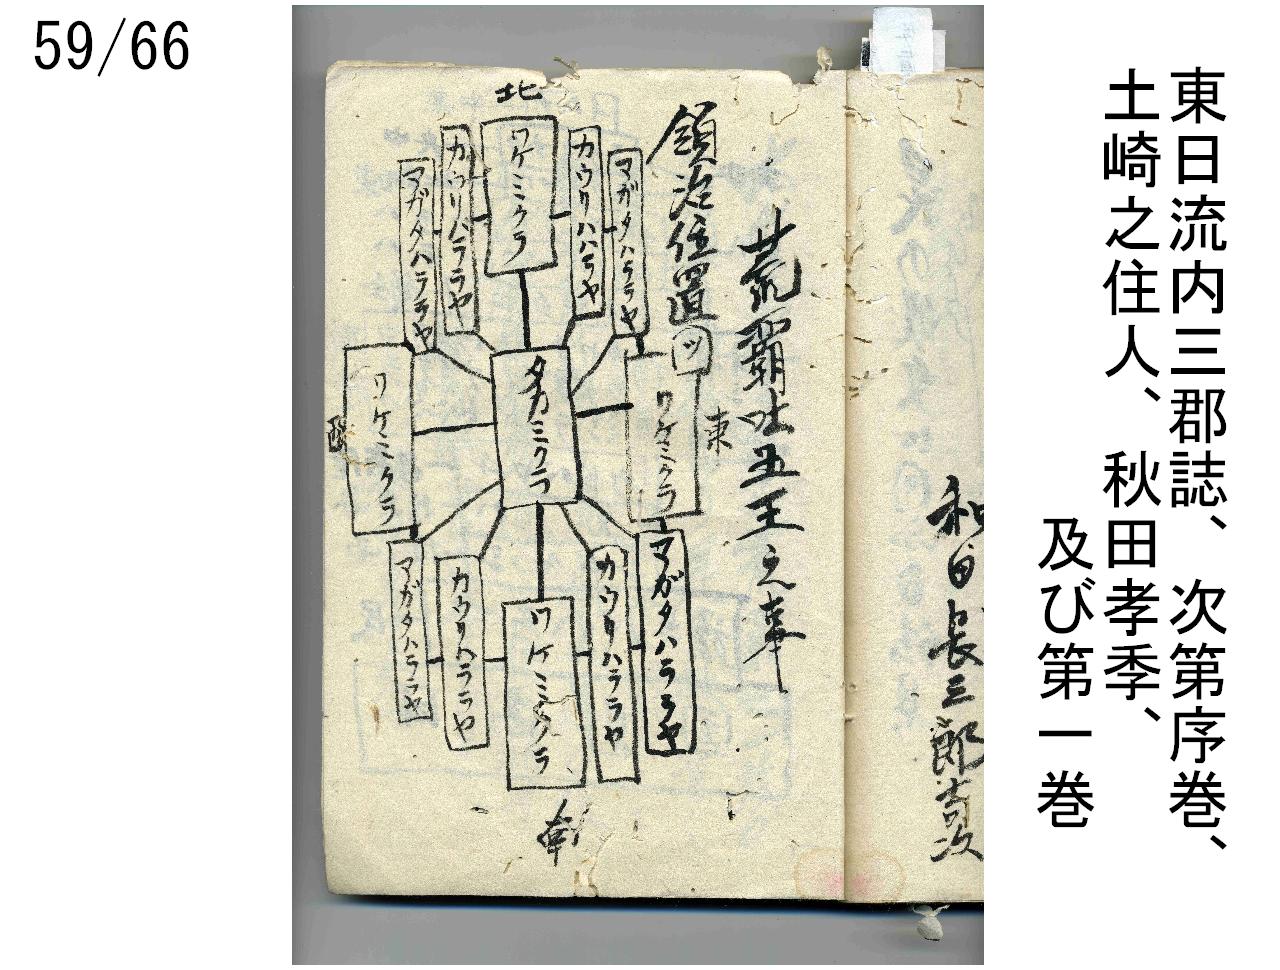 59/66
東日流内三郡誌、次第序巻、
土崎之住人、秋田孝季、
及び第一巻
和田長三郎吉次
荒覇吐五王之事
領治位置
ツ
北
ワケミクラ
カウリハラヤ
マガタハララヤ
カウリハララヤ
マガタハララヤ
東
ワケミクラ
タカミクラ
ワケミクラ
西
マガタハララヤ
カウリハララヤ
ワケミクラ
カウリハララヤ
マガタハララヤ
南